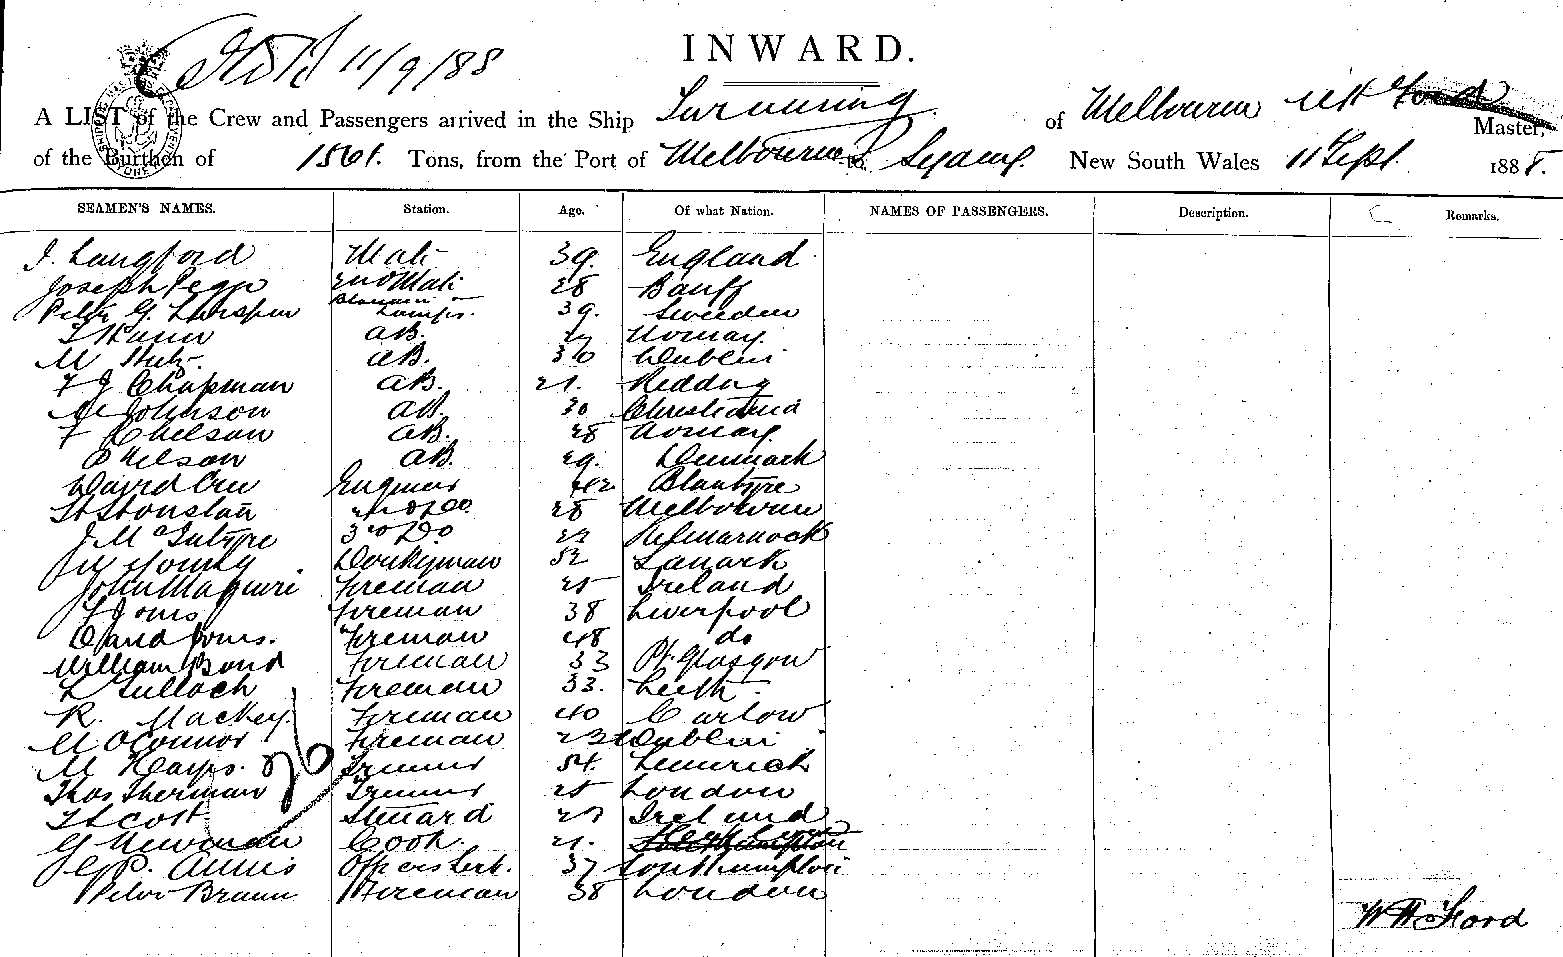 11/9/88
INWARD.
A LIST of the Crew and Passengers arrived in the Ship of Melbourne Master,
of the Burthen of 1561. Tons, from the Port of Melbourne to Sydney New South Wales 11 Sept. 1888.
SEAMEN'S NAMES. Station. Age. Of what Nation. NAMES OF PASSENGERS. Description. Remarks.
J. Langford Mate 39. England
Joseph 2nd Mate 28 Banff
Peter G. Lamps. 39. Sweden
AB. Norway
M AB. 30 Dublin
F J Chapman AB. 21.
Johnson AB. 30 Christiania
F AB. 28 Norway
Nelson AB. 29. Denmark
David Engineer 42 Blantyre
2nd Do 28 Melbourne
J McIntyre 3rd Do Kilmarnock
Young Donkeyman 52 Lanark
John Maguire Fireman 25 Ireland
Jones Fireman 38 Liverpool
David Jones. Fireman 48 do
William Bond Fireman 33 Pt Glasgow
Tulloch Fireman 33. Leith
R. Mackey. Fireman 40 Carlow
M O'Connor Fireman 23 Dublin
M Hayes. Trimmer 54. Limerick
Thos Sherman Trimmer 25 London
Scott Steward Ireland
G Newman Cook. 21.
Annis Officers Servt. 37 Southampton
Peter Braun Fireman 38 London
W H Ford